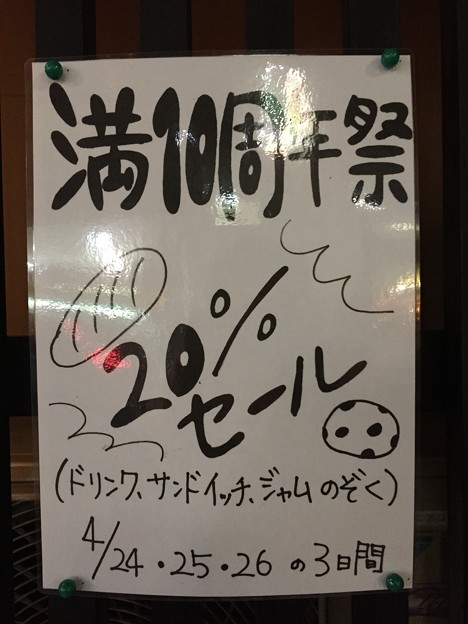 満10周年祭
20%
セール
(ドリンク、サンドイッチ、ジャムのぞく)
4/24・25・26の3日間